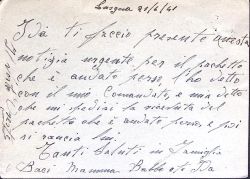 21/6/41
Ida ti faccio presente questa
notizia urgente per il pacchetto
che è andato perso, l'ho detto
con il mio Comandante, e ma detto
che mi spedisci la ricevuta del
pacchetto che è andato perso, e poi
si rancia lui.
Tanti Saluti in Famiglia
Baci Mamma Babbo